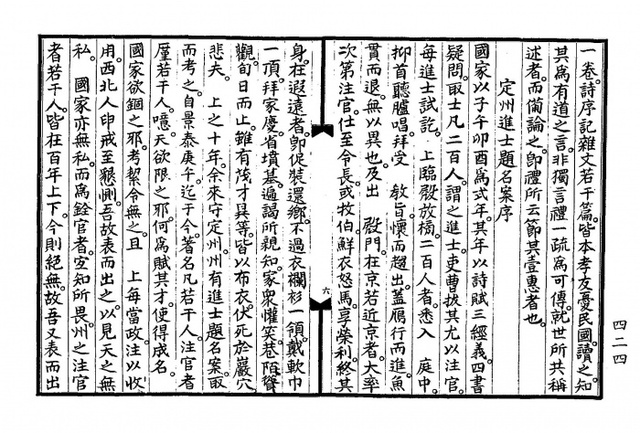 一卷。詩序記雜文若干篇。皆本孝友憂民國。讀之知
其爲有道之言。非獨言禮一疏爲可傳。就世所共稱
述者。而備論之。卽禮所云節其壹惠者也。
定州進士題名案序
國家以子午卯酉爲式年。其年以詩賦三經義四書
疑問。取士凡二百人。謂之進士。吏曹拔其尤以注官。
每進士試訖。 上臨殿放榜。二百人者。悉入 庭中。
抑首聽臚唱。拜受 敎旨。懷而趨出。蓋鴈行而進。魚
貫而退。無以異也。及出 殿門。在京若近京者。大率
次第注官。仕至令長。或牧伯。鮮衣怒馬。享榮利終其
身。在遐遠者。卽促裝還鄕。不過衣襴衫一領。戴軟巾
一頂。拜家慶省墳墓。遍謁所親知。家衆懽笑。巷陌聳
觀。旬日而止。雖有茂才異等。皆以布衣。伏死於巖穴
悲夫。 上之十年。余來守定州。州有進士題名案。取
而考之。自景泰庚午迄于今。著名凡若干人。注官者
厪若干人。噫。天欲限之邪。何爲賦其才。使得成名。
國家欲錮之邪。考絜令無之。且 上每當政注。以收
用西北人申戒至懇惻。吾故表而出之。以見天之無
私。 國家亦無私。而爲銓官者。宜知所畏。州之注官
者若干人。皆在百年上下。今則絕無。故吾又表而出
六
四二四